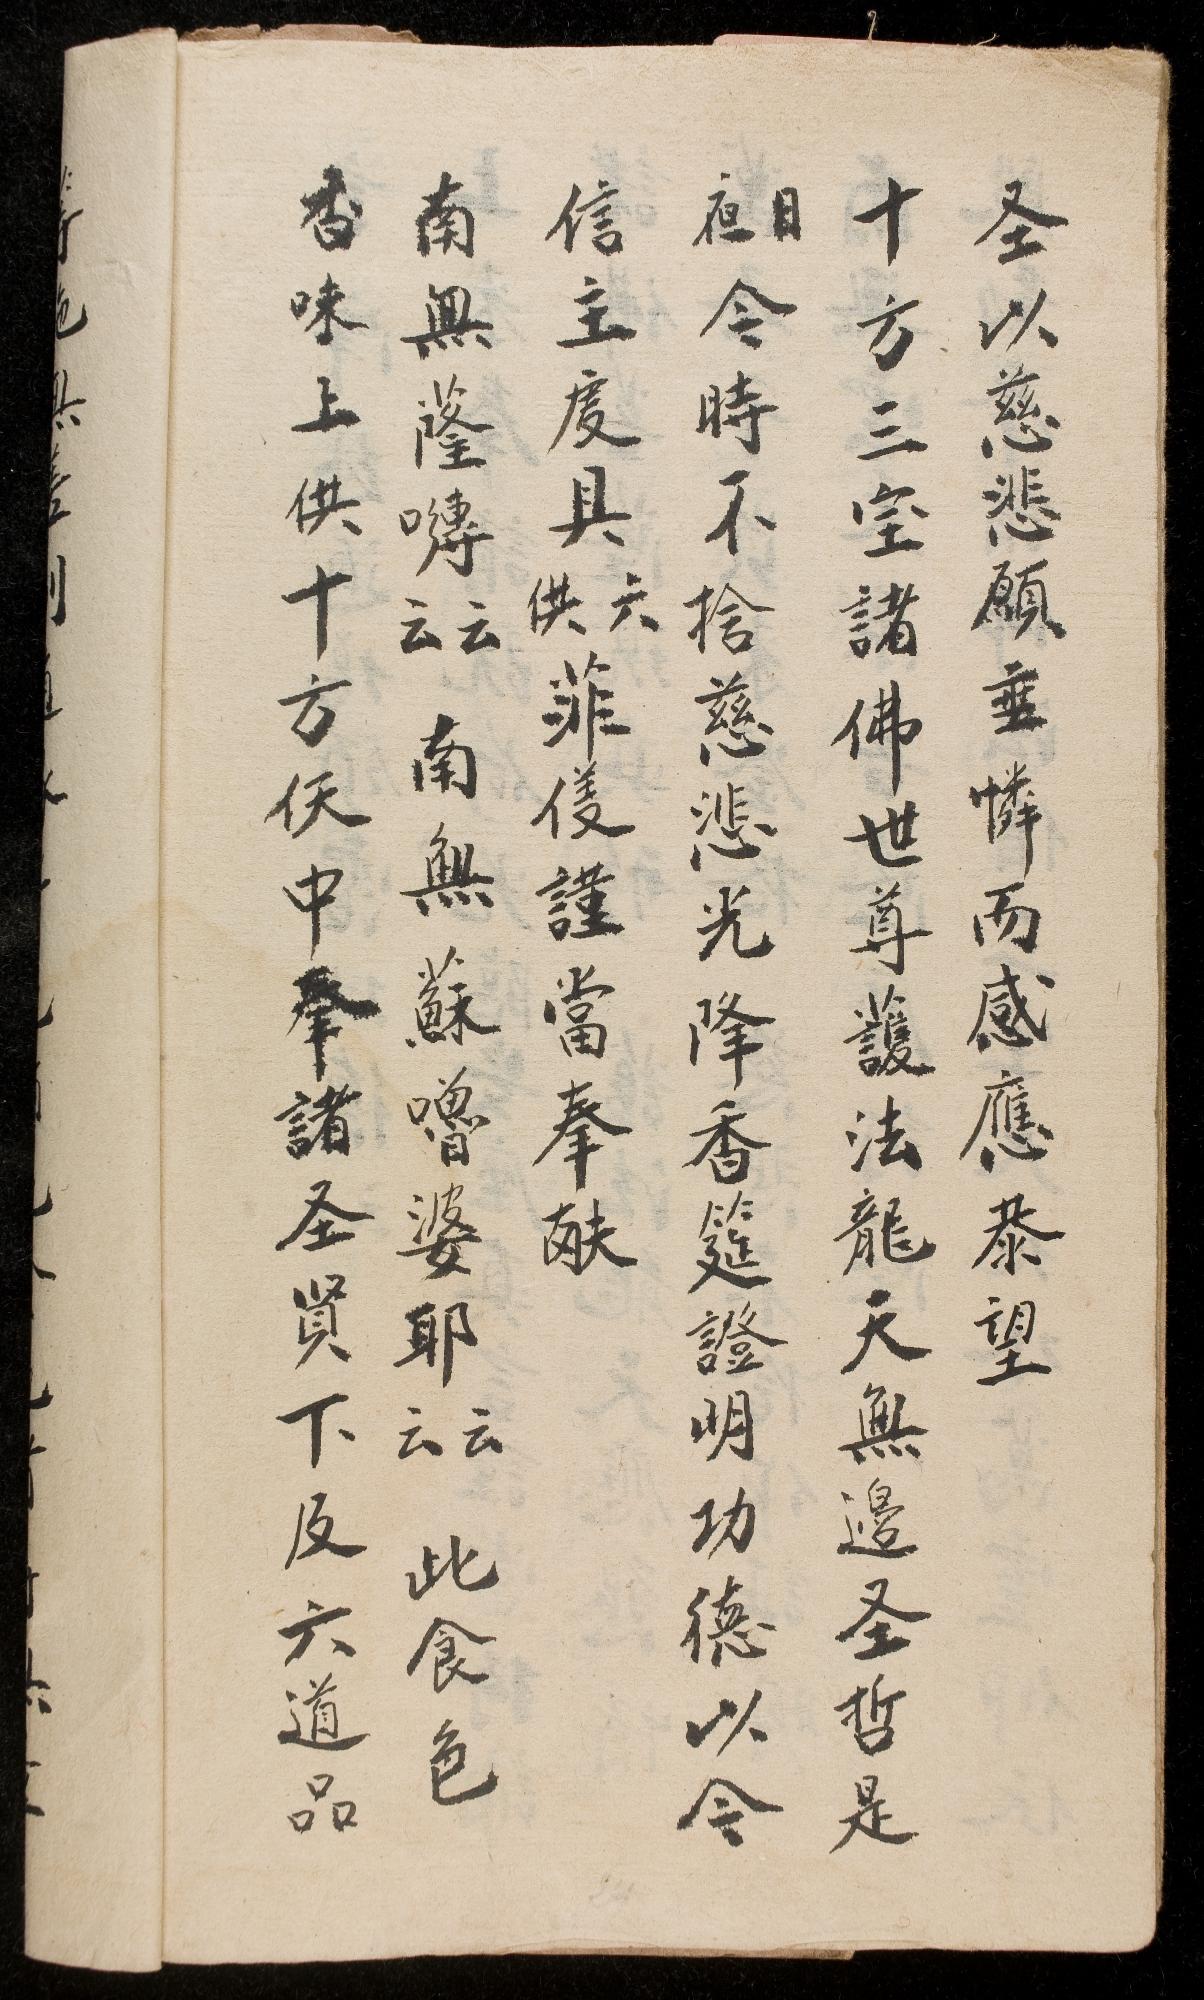 圣以慈悲願垂憐而感應恭望
十方三宝諸佛世尊護法龍天無邉圣哲是
日夜今時不捨慈悲光降香筵證明功德以今
信主虔具六供菲仪謹當奉献
南無薩嚩云云南無蘇嚕婆耶云云此食色
香味上供十方仸中奉諸圣賢下及六道品